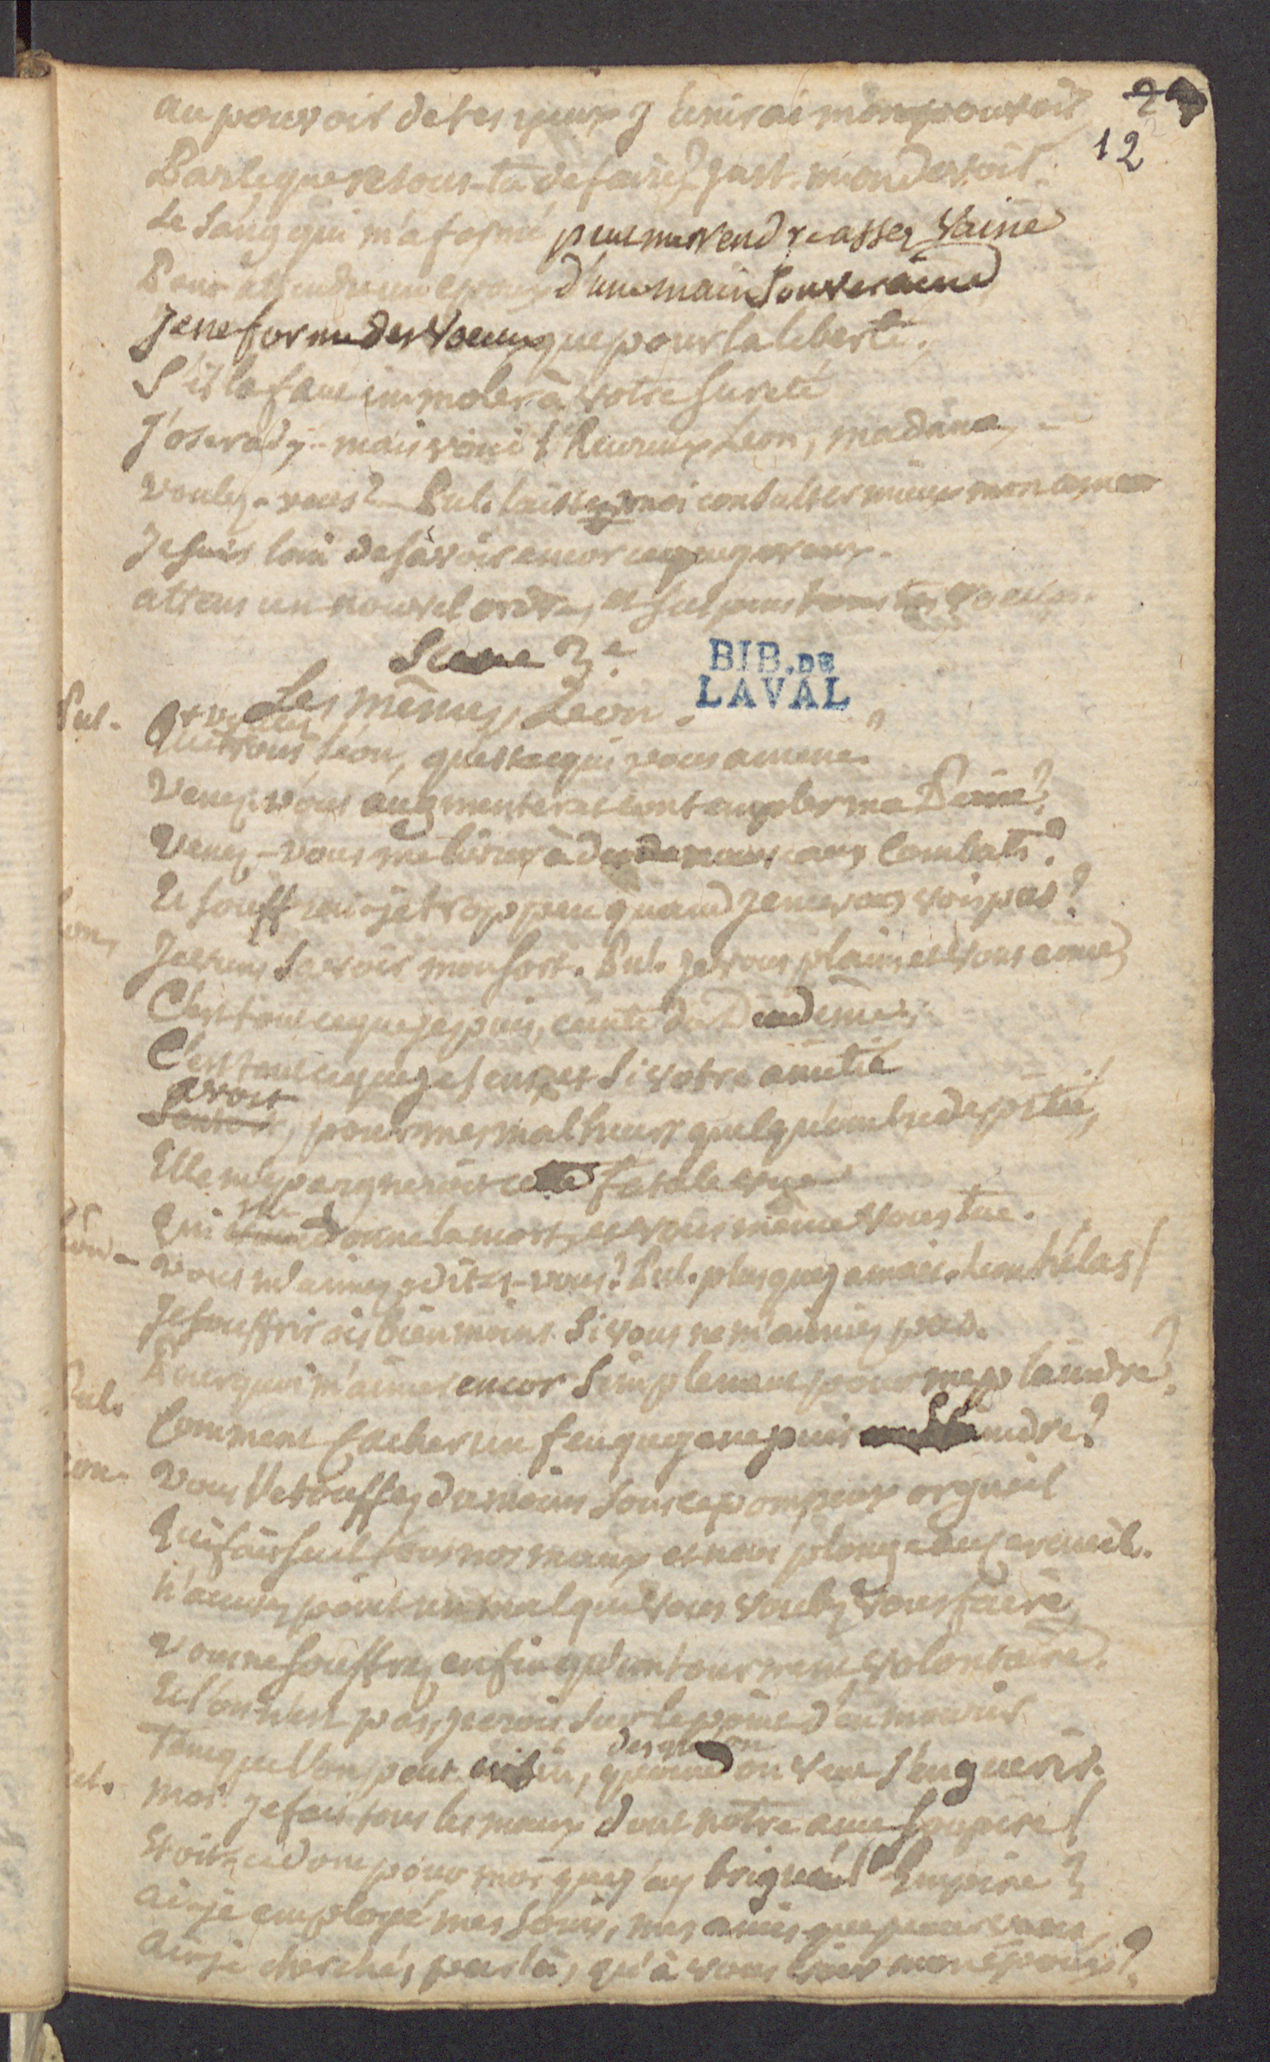 2
12
au pouvoir de tes yeux j'unirai mon pouvoir
Parle que resous-tu de faire? Just. mon devoir.
Le sang qui m'a formé peut me rendre assez vaine
Pour attendre un epoux d'une main souveraine
Je ne forme des voeux que pour la liberté.
S'il la faut immoler à votre sureté
J'oserady - mais voici l'heureux Leon, madame,
voulez-vous? - Pul. laissez moi consulter mieux mon ame
Je suis loin de savoir encor ce que je veux.
attens un nouvel ordre, et suspens tous tes voeux.
Scene 3e.
Les mêmes, Leon.
BIB. DE
LAVAL
Pul. Léon, quest ce qui vous amene.
Venez-vous augmenter et contempler ma Peine?
Venez-vous me livrer à de nouveaux Combats?
Et souffrai-je trop peu quand je ne vous vois pas?
Leon, Je veux savoir mon sort. Pul. Je vous plains et vous aime
C'est tout ce que je puis, ceinte du Diadême,
C'est tout ce que je sens, et si votre amitié
avoit
Sentoit, pour mes malheurs quelqu'ombre de pitié,
Elle m'epargneroit cette fatale vue
Qui donne la mort, et vous même vous tue.
Léon - vous m'aimez, dites-vous? Pul. plus que jamais. Leon hélas!
Je souffrirois bien moins si vous ne m'aimiez pas.
Pourquoi m'aimer encor simplement pour me plaindre?
Pul. Comment Cacher un feu que je ne puis eteindre?
Leon. Vous l'etouffez du moins sous ce pompeux orgueil
Qui fait seul tous nos maux et nous plonge au cercueil.
N'accusez point un mal que vous voulez vous faire
vous ne souffrez enfin qu'un tourment volontaire.
Et l'on n'est pas, je crois sur le point d'en mourir
des qu'on
Tant que l'on peut enfin, quand on veut s'en guerir.
Pul. moi! je fais tous les maux dont notre ame soupire!
Etoit-ce donc pour moi que j'ay brigué l'Empire?
ai-je employé mes soins, mes amis que pour vous,
ai-je cherché, par là, qu'à vous voir mon époux?